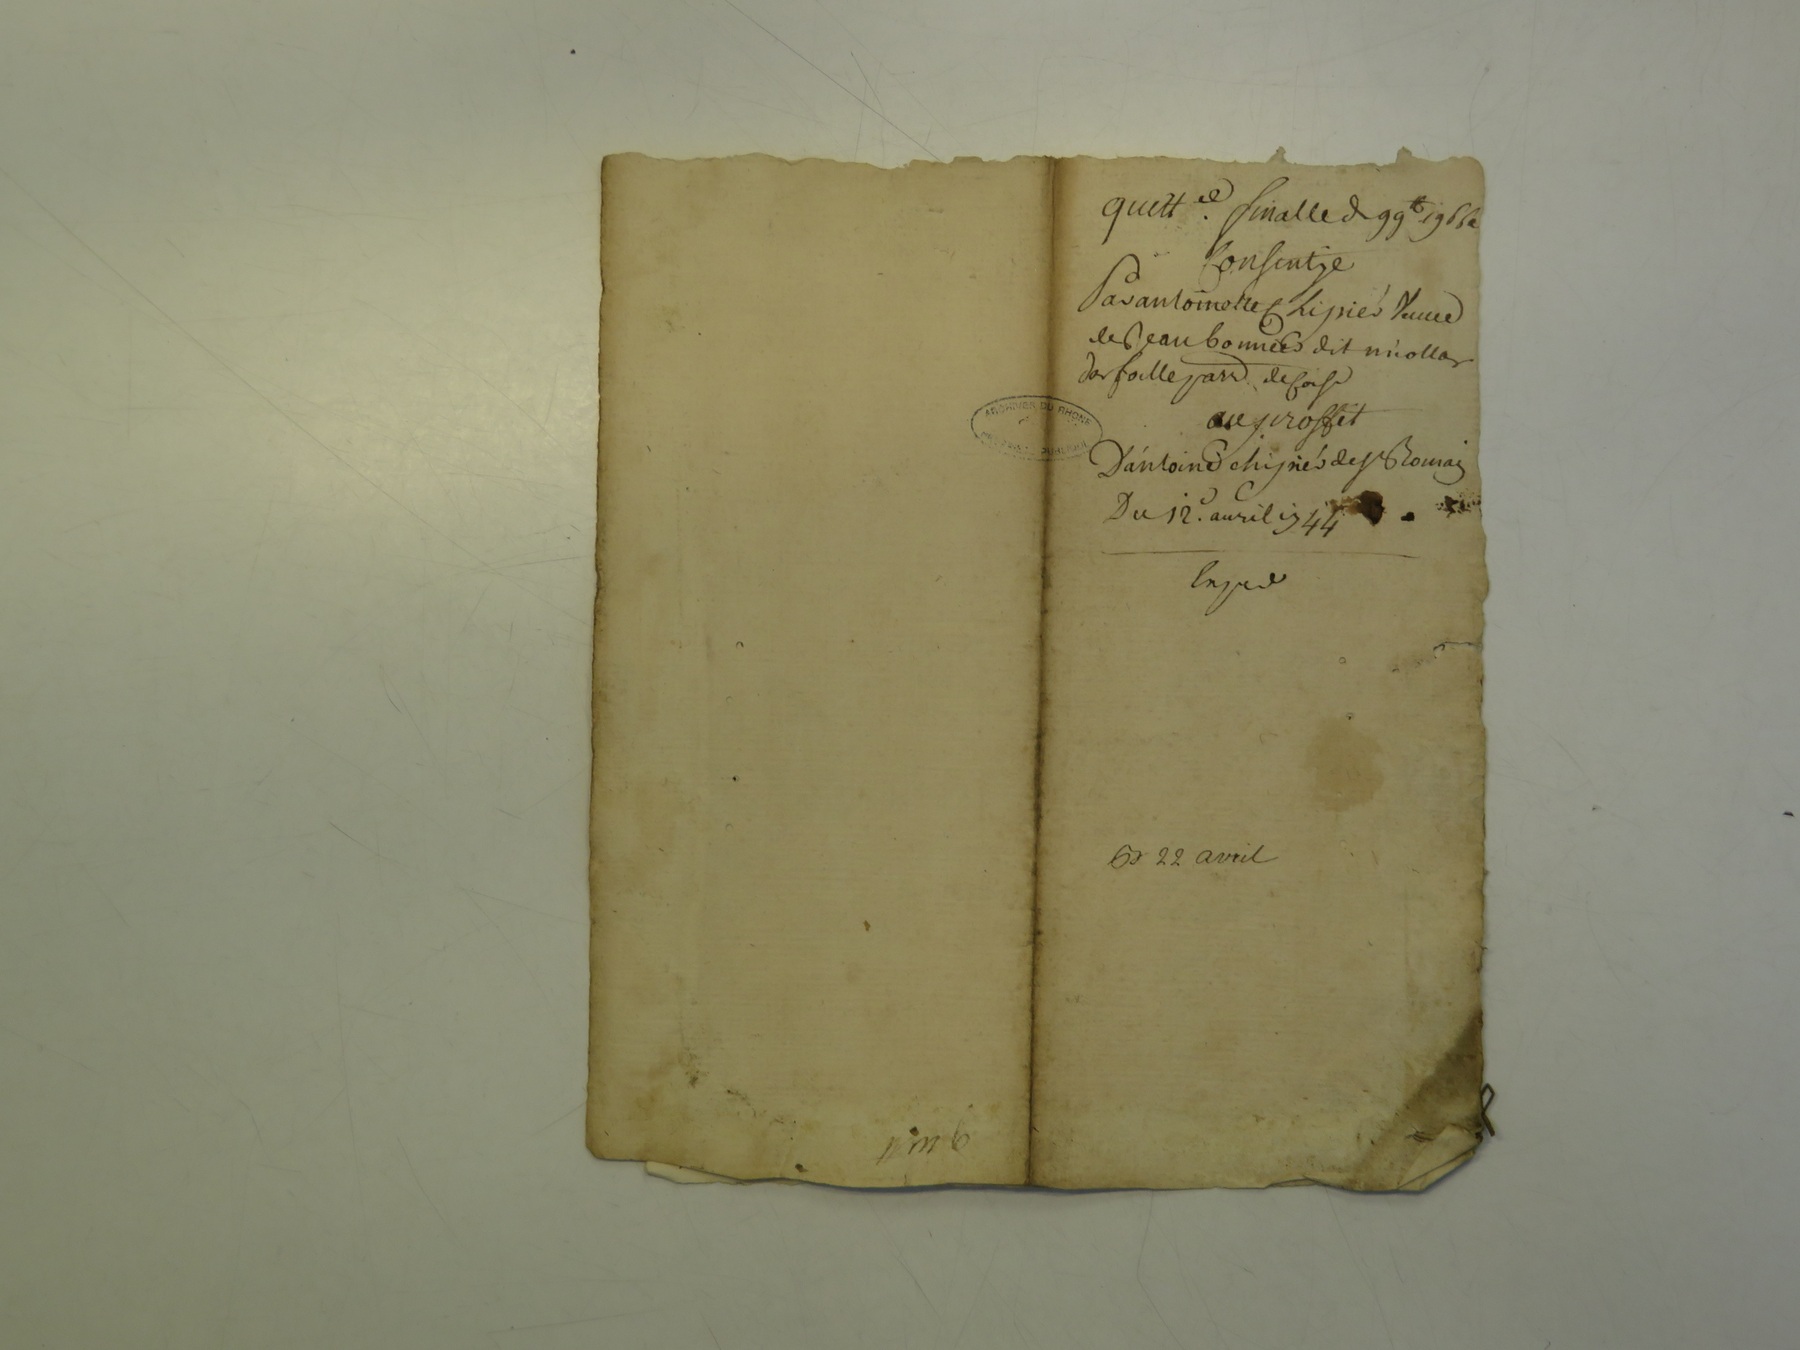 quitt.ce finalle de 99tt 19s 6d
Consentye
Par antoinette Chipier Veuve
de Jean bonnier dit micollas
parr. de
au proffit
D'antoine chipier de st Romain
Du 12e. avril 1744
Exped
Ex 22 avril
ARCHIVES DU RHONE